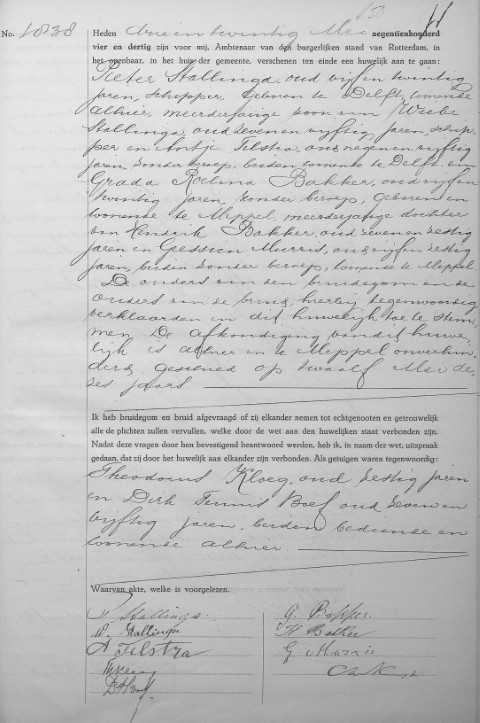 No. 1838
Heden drie en twintig Mei negentienhonderd
vier en dertig zijn voor mij, Ambtenaar van den burgerlijken stand van Rotterdam,
in het openbaar, in het huis der gemeente, verschenen ten einde een huwelijk aan te gaan:
Pieter Stallinga, oud vijf en twintig
jaren, schipper, geboren te Delft, wonende
alhier, meerderjarige zoon van Wiebe
Stallinga, oud zeven en vijftig jaren, schip-
per en Antje Tilstra, oud negen en vijftig
jaren, zonder beroep, beiden wonende te Delft en
Grada Roelina Bakker, oud vijf en
twintig jaren, zonder beroep, geboren en
wonende te Meppel, meerderjarige dochter
van Hendrik Bakker, oud zeven en zestig
jaren en Gessien Murris, oud vijf en zestig
jaren, beiden zonder beroep, wonende te Meppel.
De ouders van den bruidegom en de
ouders van de bruid, hierbij tegenwoordig
verklaarden in dit huwelijk toe te stem-
men. De afkondiging van dit huwe-
lijk is alhier en te Meppel onverhin-
derd geschied op twaalf Mei de-
zes jaars
Ik heb bruidegom en bruid afgevraagd of zij elkander nemen tot echtgenooten en getrouwelijk
alle de plichten zullen vervullen, welke door de wet aan den huwelijken staat verbonden zijn.
Nadat deze vragen door hen bevestigend beantwoord werden, heb ik, in naam der wet, uitspraak
gedaan, dat zij door het huwelijk aan elkander zijn verbonden. Als getuigen waren tegenwoordig:
Theodorus Kloeg, oud zestig jaren
en Dirk Teunis Boef, oud zeven en
vijftig jaren, beiden bediende en
wonende alhier
Waarvan akte, welke is voorgelezen.
P Stallinga. G. Bakker.
W. Stallinga H Bakker
A Tilstra G Murris